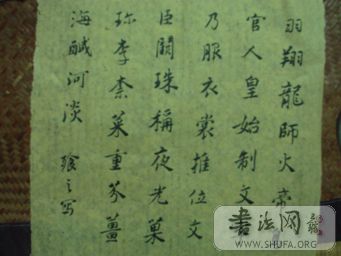 羽翔龍師火帝
官人皇始制文
乃服衣裳推位文
巨闕珠稱夜光菓
珍李柰菜重芥薑
海醎河淡
之写
書法网
WWW.SHUFA.ORG